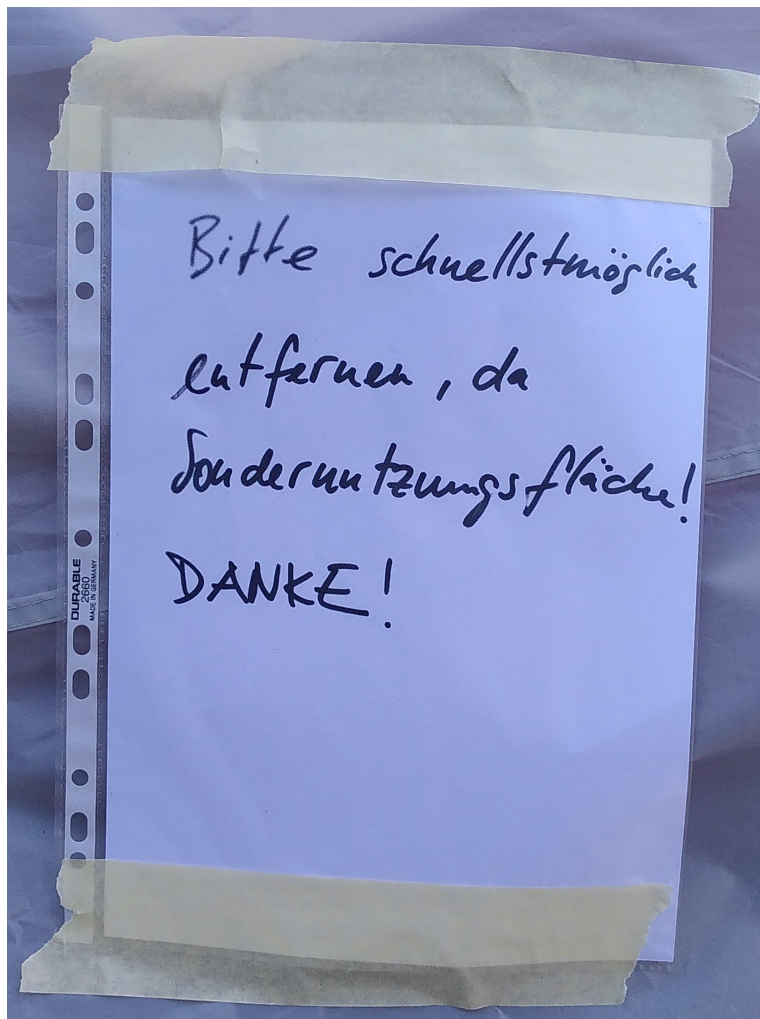 Bitte schnellstmöglich
entfernen, da
Sondernutzungsfläche!
DANKE!
DURABLE
2660
MADE IN GERMANY